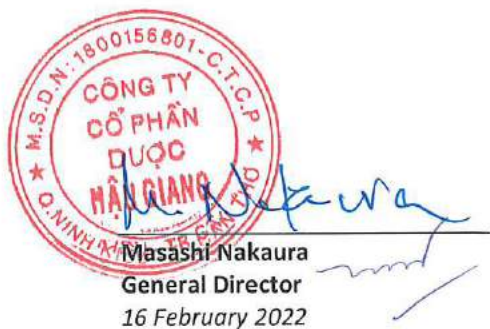 M.S.D.N: 1800156801-C.T.C.P
CÔNG TY
CỔ PHẦN
DƯỢC
HẬU GIANG
Q.NINH KIỀU - TP.CẦN THƠ
M. Nakaura
Masashi Nakaura
General Director
16 February 2022